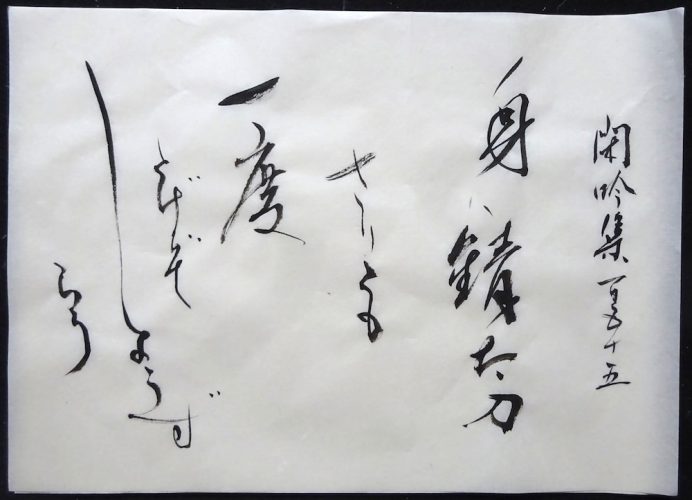 閑吟集 百五十五
身ハ錆太刀
さりとも
一度
とげぞ
しようず
らう